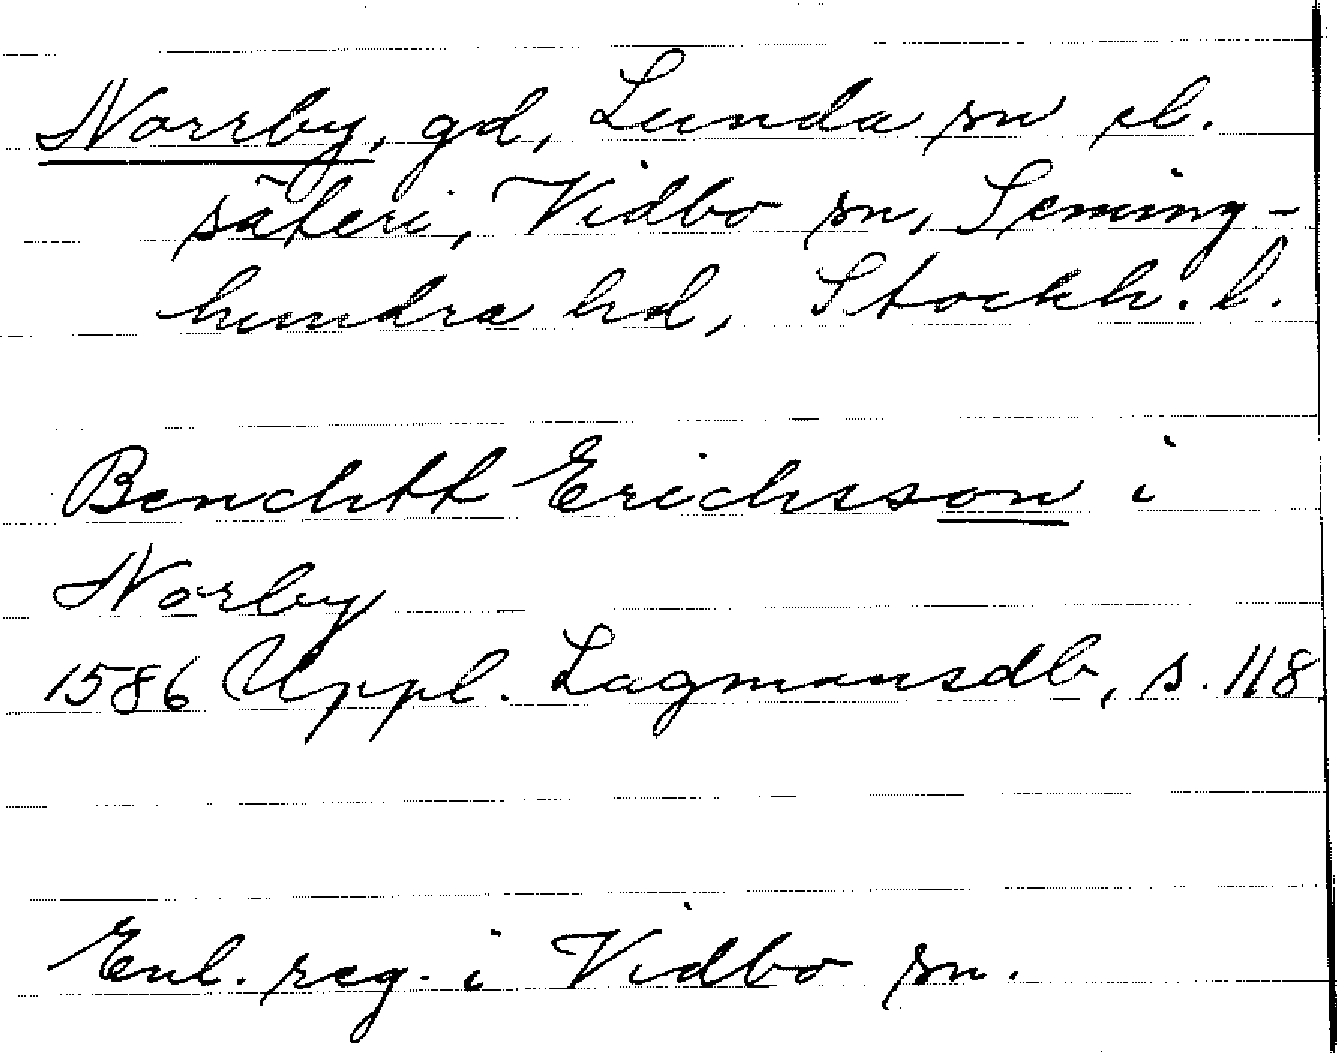 Norrby, gd, Lunda sn el.
säteri, Vidbo sn, Seming-
hundra hd, Stockh. l.
Benchtt Erichsson i
Norby
1586 Uppl. Lagmansdb, s. 118.
Enl. reg. i Vidbo sn.